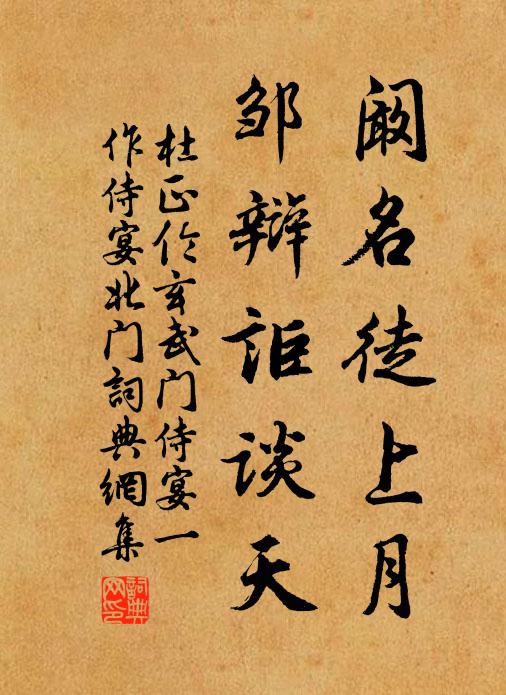 阚名徒上月
邹辩詎谈天
杜正伦玄武门侍宴一
作侍宴北门詞典網集
詞典
网印